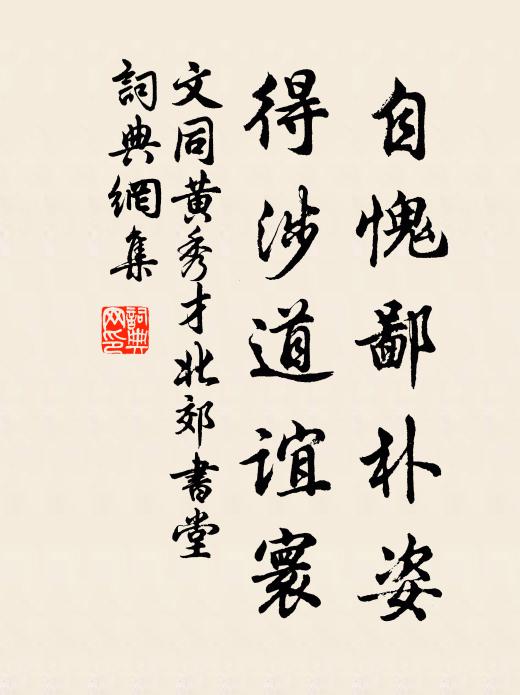 自愧鄙朴姿
得涉道谊寰
文同黄秀才北郊書堂
詞典網集
詞典网印